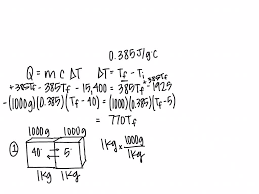 0.385 J/g°C
Q = m c ΔT ΔT = Tf - Ti
+385Tf +385Tf
-385Tf - 15,400 = 385Tf - 1925
-(1000g)(0.385)(Tf-40) = (1000)(0.385)(Tf-5)
= 770Tf
1000g 1000g
① 40° 5° 1kg × 1000g
1kg
1kg 1kg